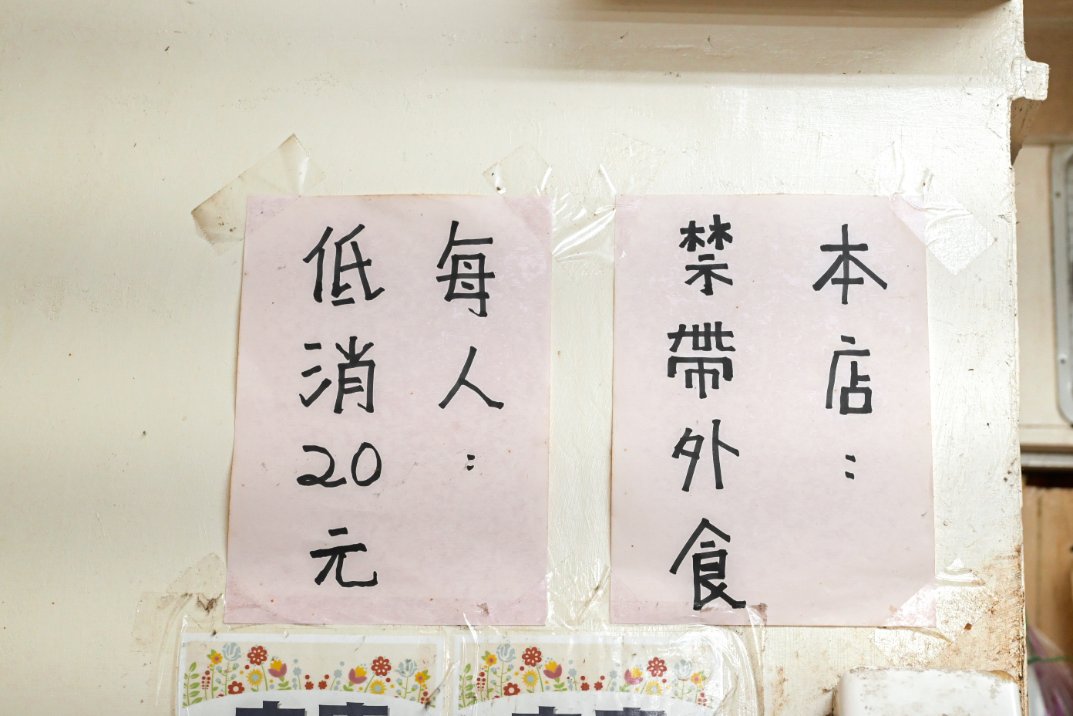 本店：
禁帶外食
每人：
低消20元